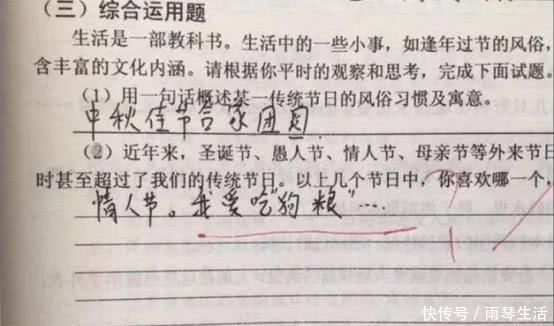 （三）综合运用题
生活是一部教科书。生活中的一些小事，如逢年过节的风俗，
含丰富的文化内涵。请根据你平时的观察和思考，完成下面试题。
（1）用一句话概述某一传统节日的风俗习惯及寓意。
中秋佳节合家团圆
（2）近年来，圣诞节、愚人节、情人节、母亲节等外来节日
时甚至超过了我们的传统节日。以上几个节日中，你喜欢哪一个，
情人节。我爱吃“狗粮”…
?
快传号／雨琴生活